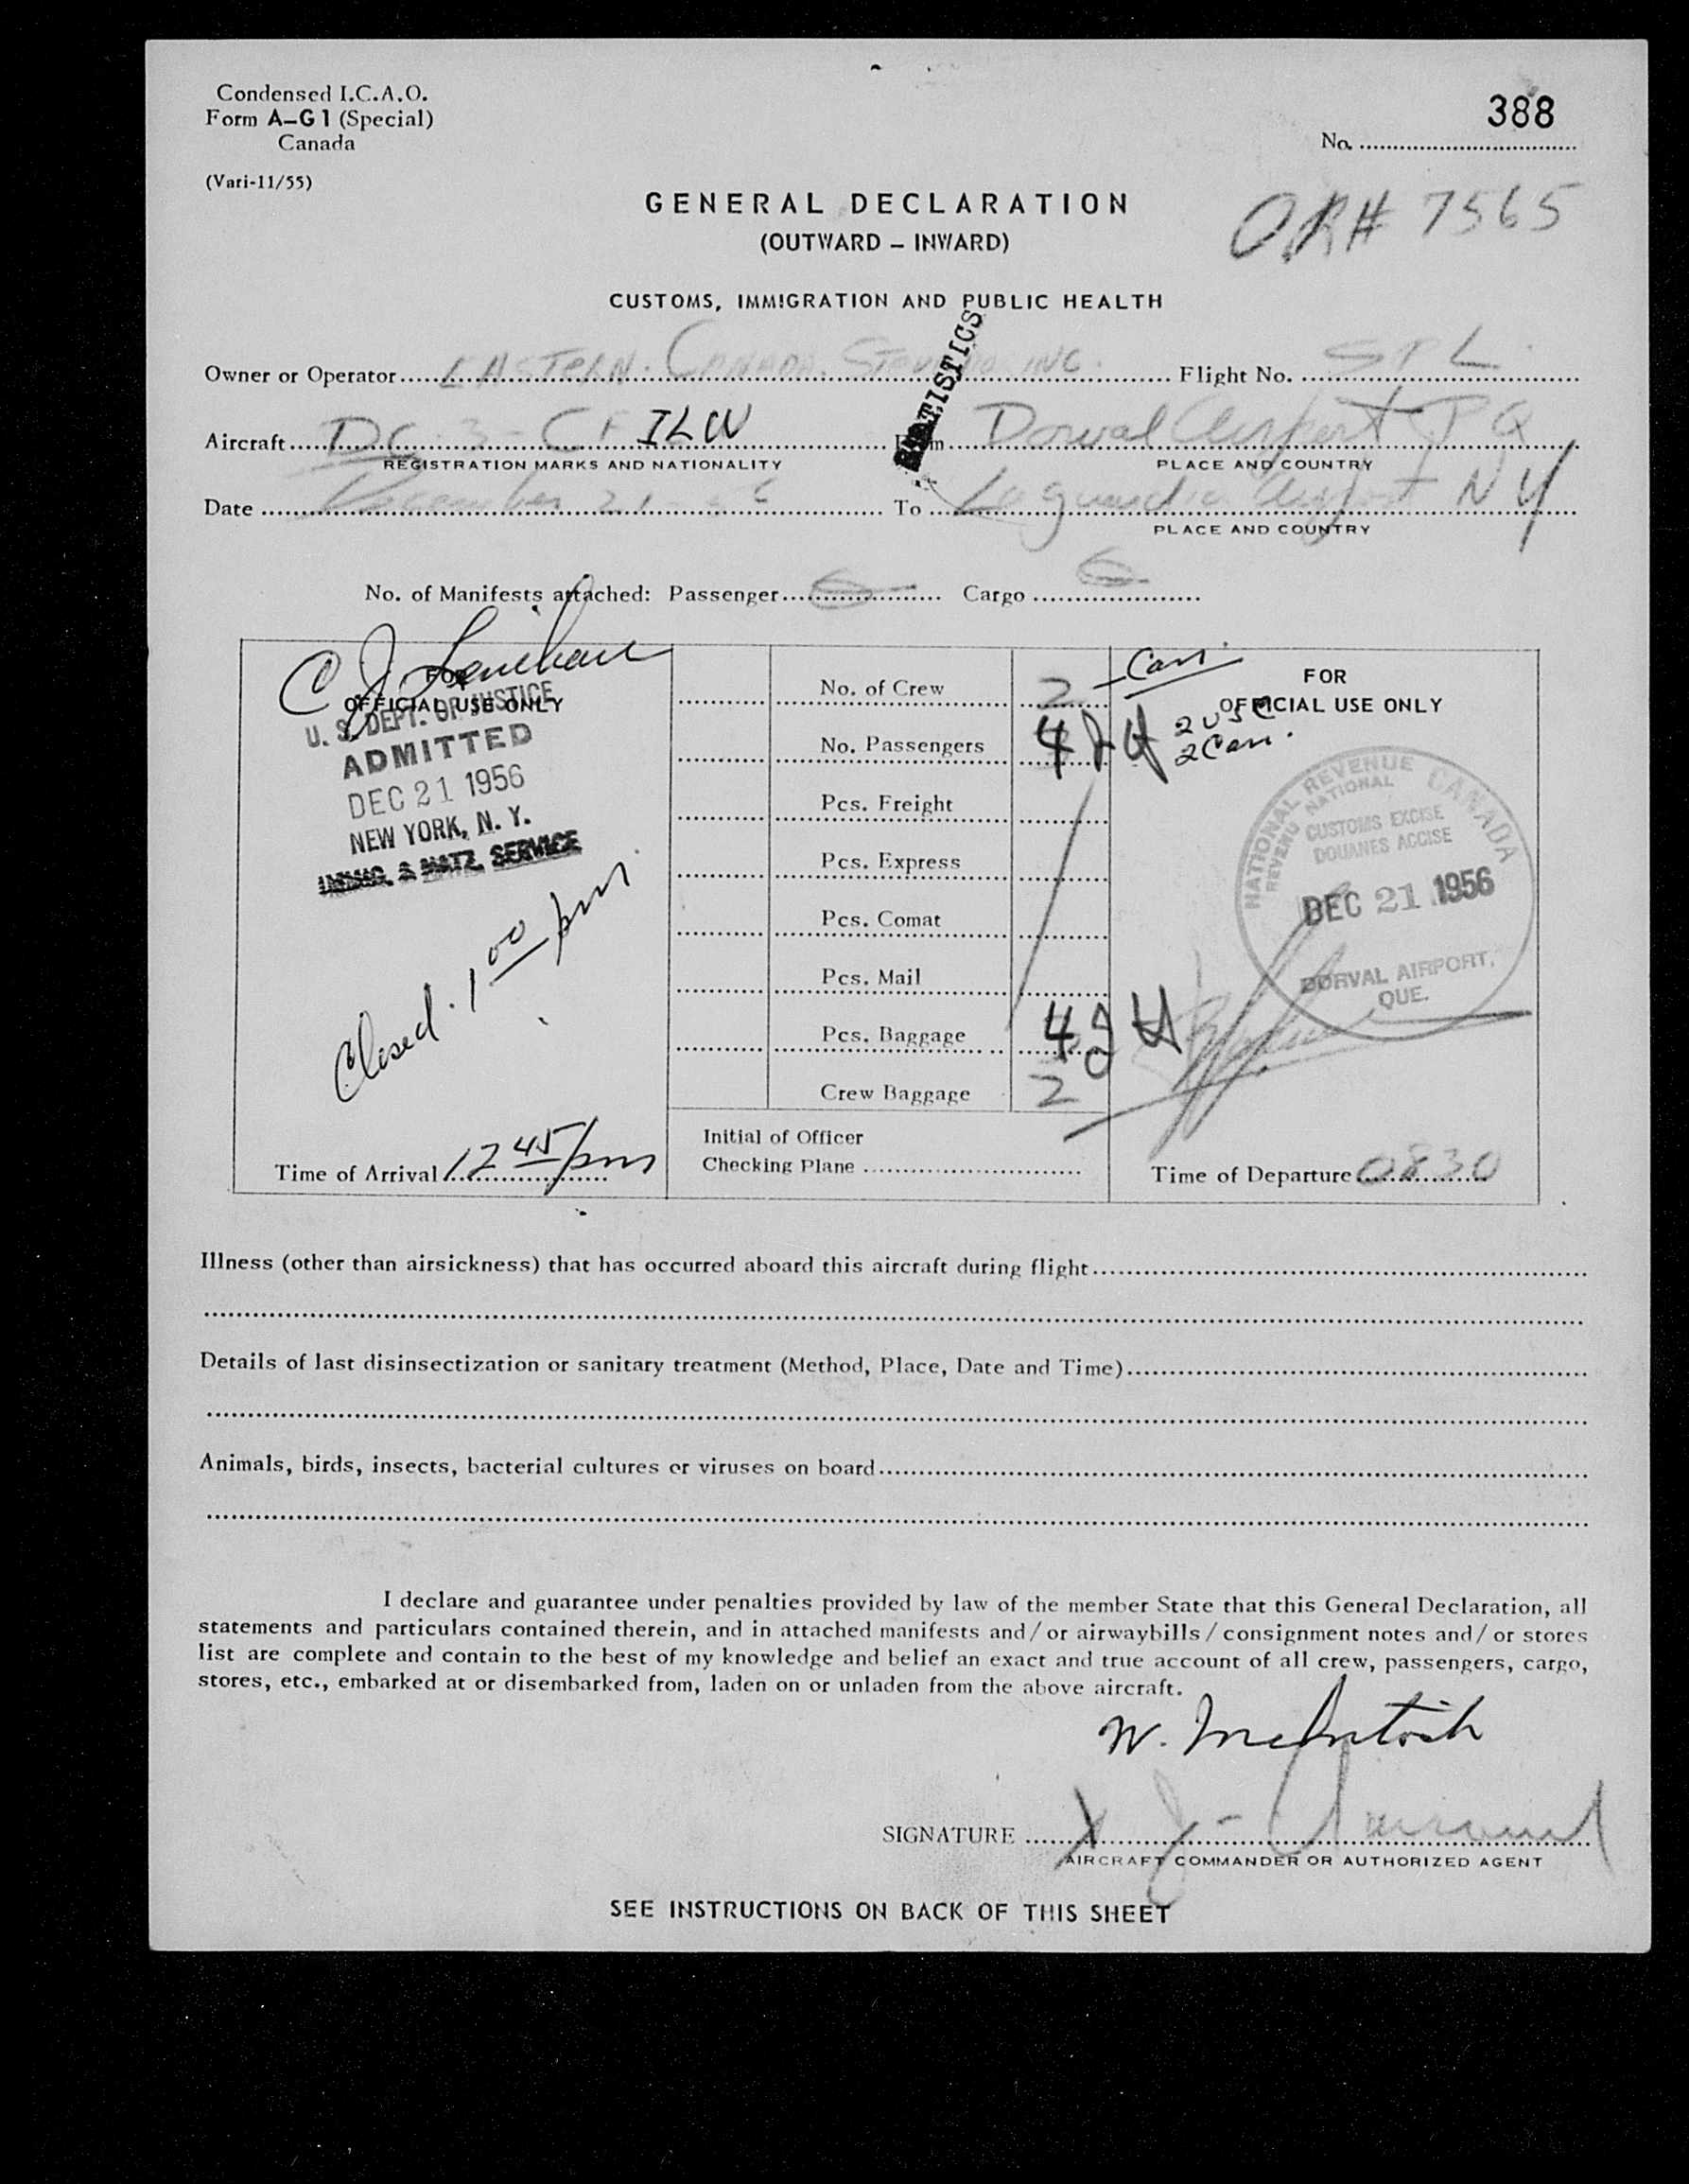 Condensed I.C.A.O.
Form A-G1 (Special)
Canada
(Vari-11/55)
388
No. ........
OR# 7565
GENERAL DECLARATION
(OUTWARD – INWARD)
CUSTOMS, IMMIGRATION AND PUBLIC HEALTH
STATISTICS
Owner or Operator EASTERN. CANADA. INC. Flight No. SPL.
Aircraft DC-3-CF ILW From Dorval Airport PQ
REGISTRATION MARKS AND NATIONALITY PLACE AND COUNTRY
Date December 21 To Laguardia Airport NY
PLACE AND COUNTRY
No. of Manifests attached: Passenger Cargo
C J
FOR
OFFICIAL USE ONLY
U. S. DEPT. OF JUSTICE
ADMITTED
DEC 21 1956
NEW YORK, N. Y.
IMMIG. & NATZ. SERVICE
Closed. 1 00 pm
Time of Arrival 12 45 pm
No. of Crew 2
No. Passengers 4
Pcs. Freight
Pcs. Express
Pcs. Comat
Pcs. Mail
Pcs. Baggage 4
Crew Baggage 2
Initial of Officer
Checking Plane ........
Can.
FOR
OFFICIAL USE ONLY
2 USC
2 Can.
NATIONAL REVENUE CANADA
REVENU NATIONAL
CUSTOMS EXCISE
DOUANES ACCISE
DEC 21 1956
DORVAL AIRPORT,
QUE.
Time of Departure 0830
Illness (other than airsickness) that has occurred aboard this aircraft during flight........
Details of last disinsectization or sanitary treatment (Method, Place, Date and Time)........
Animals, birds, insects, bacterial cultures or viruses on board........
I declare and guarantee under penalties provided by law of the member State that this General Declaration, all
statements and particulars contained therein, and in attached manifests and/or airwaybills/consignment notes and/or stores
list are complete and contain to the best of my knowledge and belief an exact and true account of all crew, passengers, cargo,
stores, etc., embarked at or disembarked from, laden on or unladen from the above aircraft.
W. McIntosh
SIGNATURE
AIRCRAFT COMMANDER OR AUTHORIZED AGENT
SEE INSTRUCTIONS ON BACK OF THIS SHEET